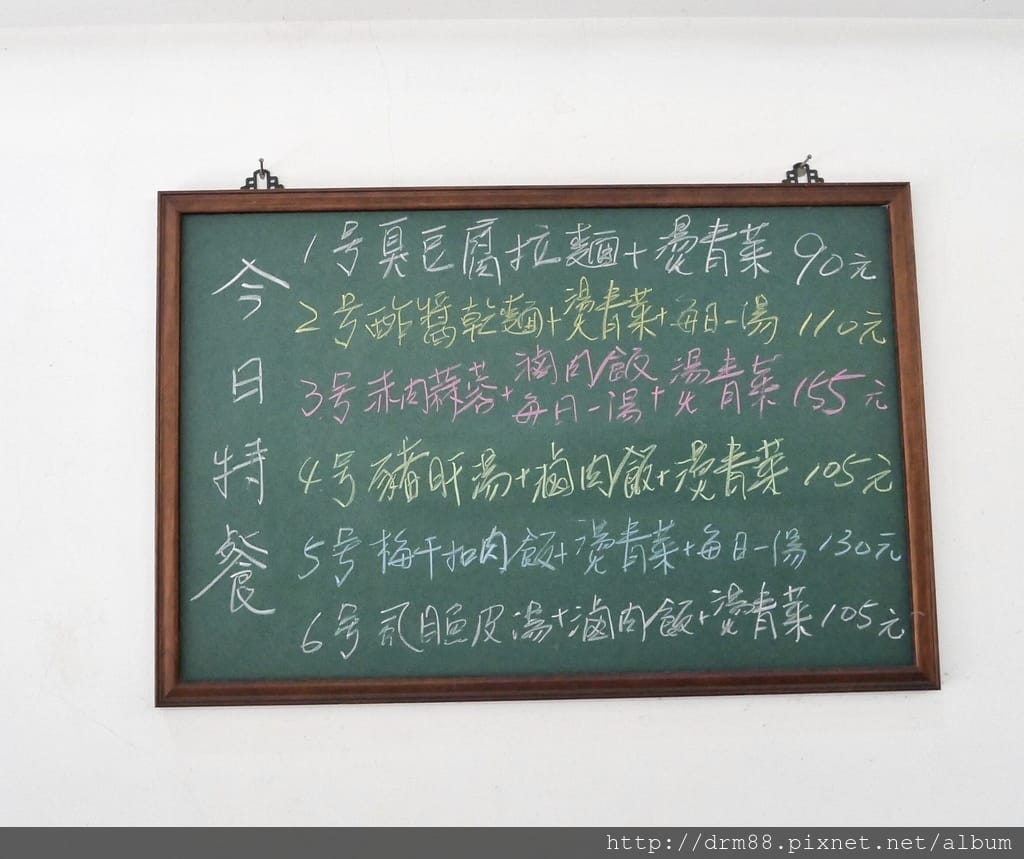 今日特餐
1号臭豆腐拉麵+燙青菜 90元
2号酢醬乾麵+燙青菜+每日一湯 110元
3号赤肉蒜蓉+滷肉飯+燙青菜 155元
每日一湯
4号豬肝湯+滷肉飯+燙青菜 105元
5号梅干扣肉飯+燙青菜+每日一湯 130元
6号虱目魚皮湯+滷肉飯+燙青菜 105元
http://drm88.pixnet.net/album